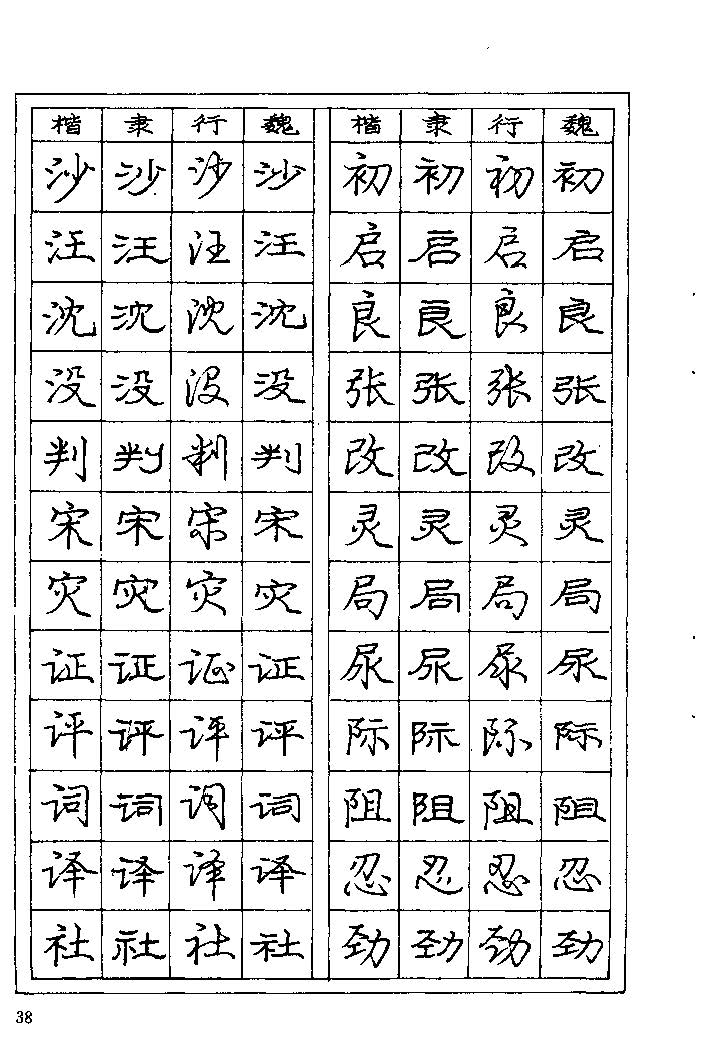 楷 隶 行 魏 楷 隶 行 魏
沙 沙 沙 沙 初 初 初 初
汪 汪 汪 汪 启 启 启 启
沈 沈 沈 沈 良 良 良 良
没 没 没 没 张 张 张 张
判 判 判 判 改 改 改 改
宋 宋 宋 宋 灵 灵 灵 灵
灾 灾 灾 灾 局 局 局 局
证 证 证 证 尿 尿 尿 尿
评 评 评 评 际 际 际 际
词 词 词 词 阻 阻 阻 阻
译 译 译 译 忍 忍 忍 忍
社 社 社 社 劲 劲 劲 劲
38